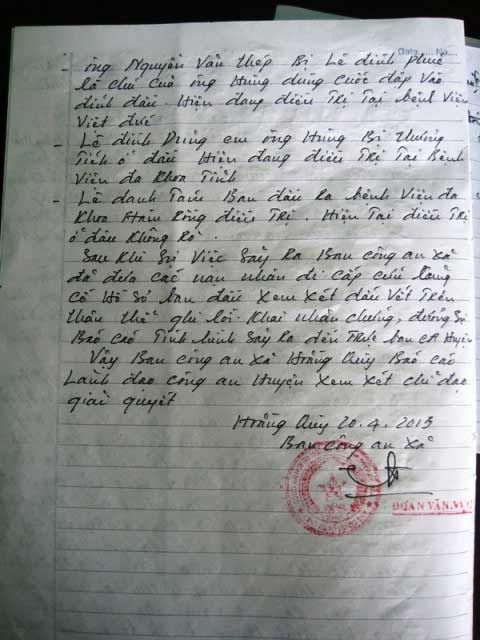 Date.... No....
- ông Nguyễn Văn thép Bị Lê đình phuc
là chú của ông Hùng dùng cuốc đập vào
đỉnh đầu. Hiện đang điều Trị Tại bệnh Viện
Việt đức
- Lê đình Dũng em ông Hùng Bị thương
Tích ở đầu Hiện đang điều Trị Tại Bệnh
Viện đa khoa Tỉnh
- Lê danh Tám Ban đầu Ra bệnh Viện đa
khoa Hàm Rồng điều Trị. Hiện Tại điều Trị
ở đâu không Rõ.
Sau khi Sự Việc Sảy Ra Ban công an xã
đã đưa các nạn nhân đi cấp cứu
có Hồ Sơ ban đầu xem xét dấu vết Trên
thân thể ghi lời khai nhân chứng, đương Sự
Báo cáo Tình hình Sảy Ra đến Trực ban CA Huyện
Vậy Ban công an xã Hoằng Quỳ Báo cáo
Lãnh đạo công an Huyện xem xét chỉ đạo
giải quyết
Hoằng Quỳ 20.4.2013
Ban công an xã
ĐOÀN VĂN